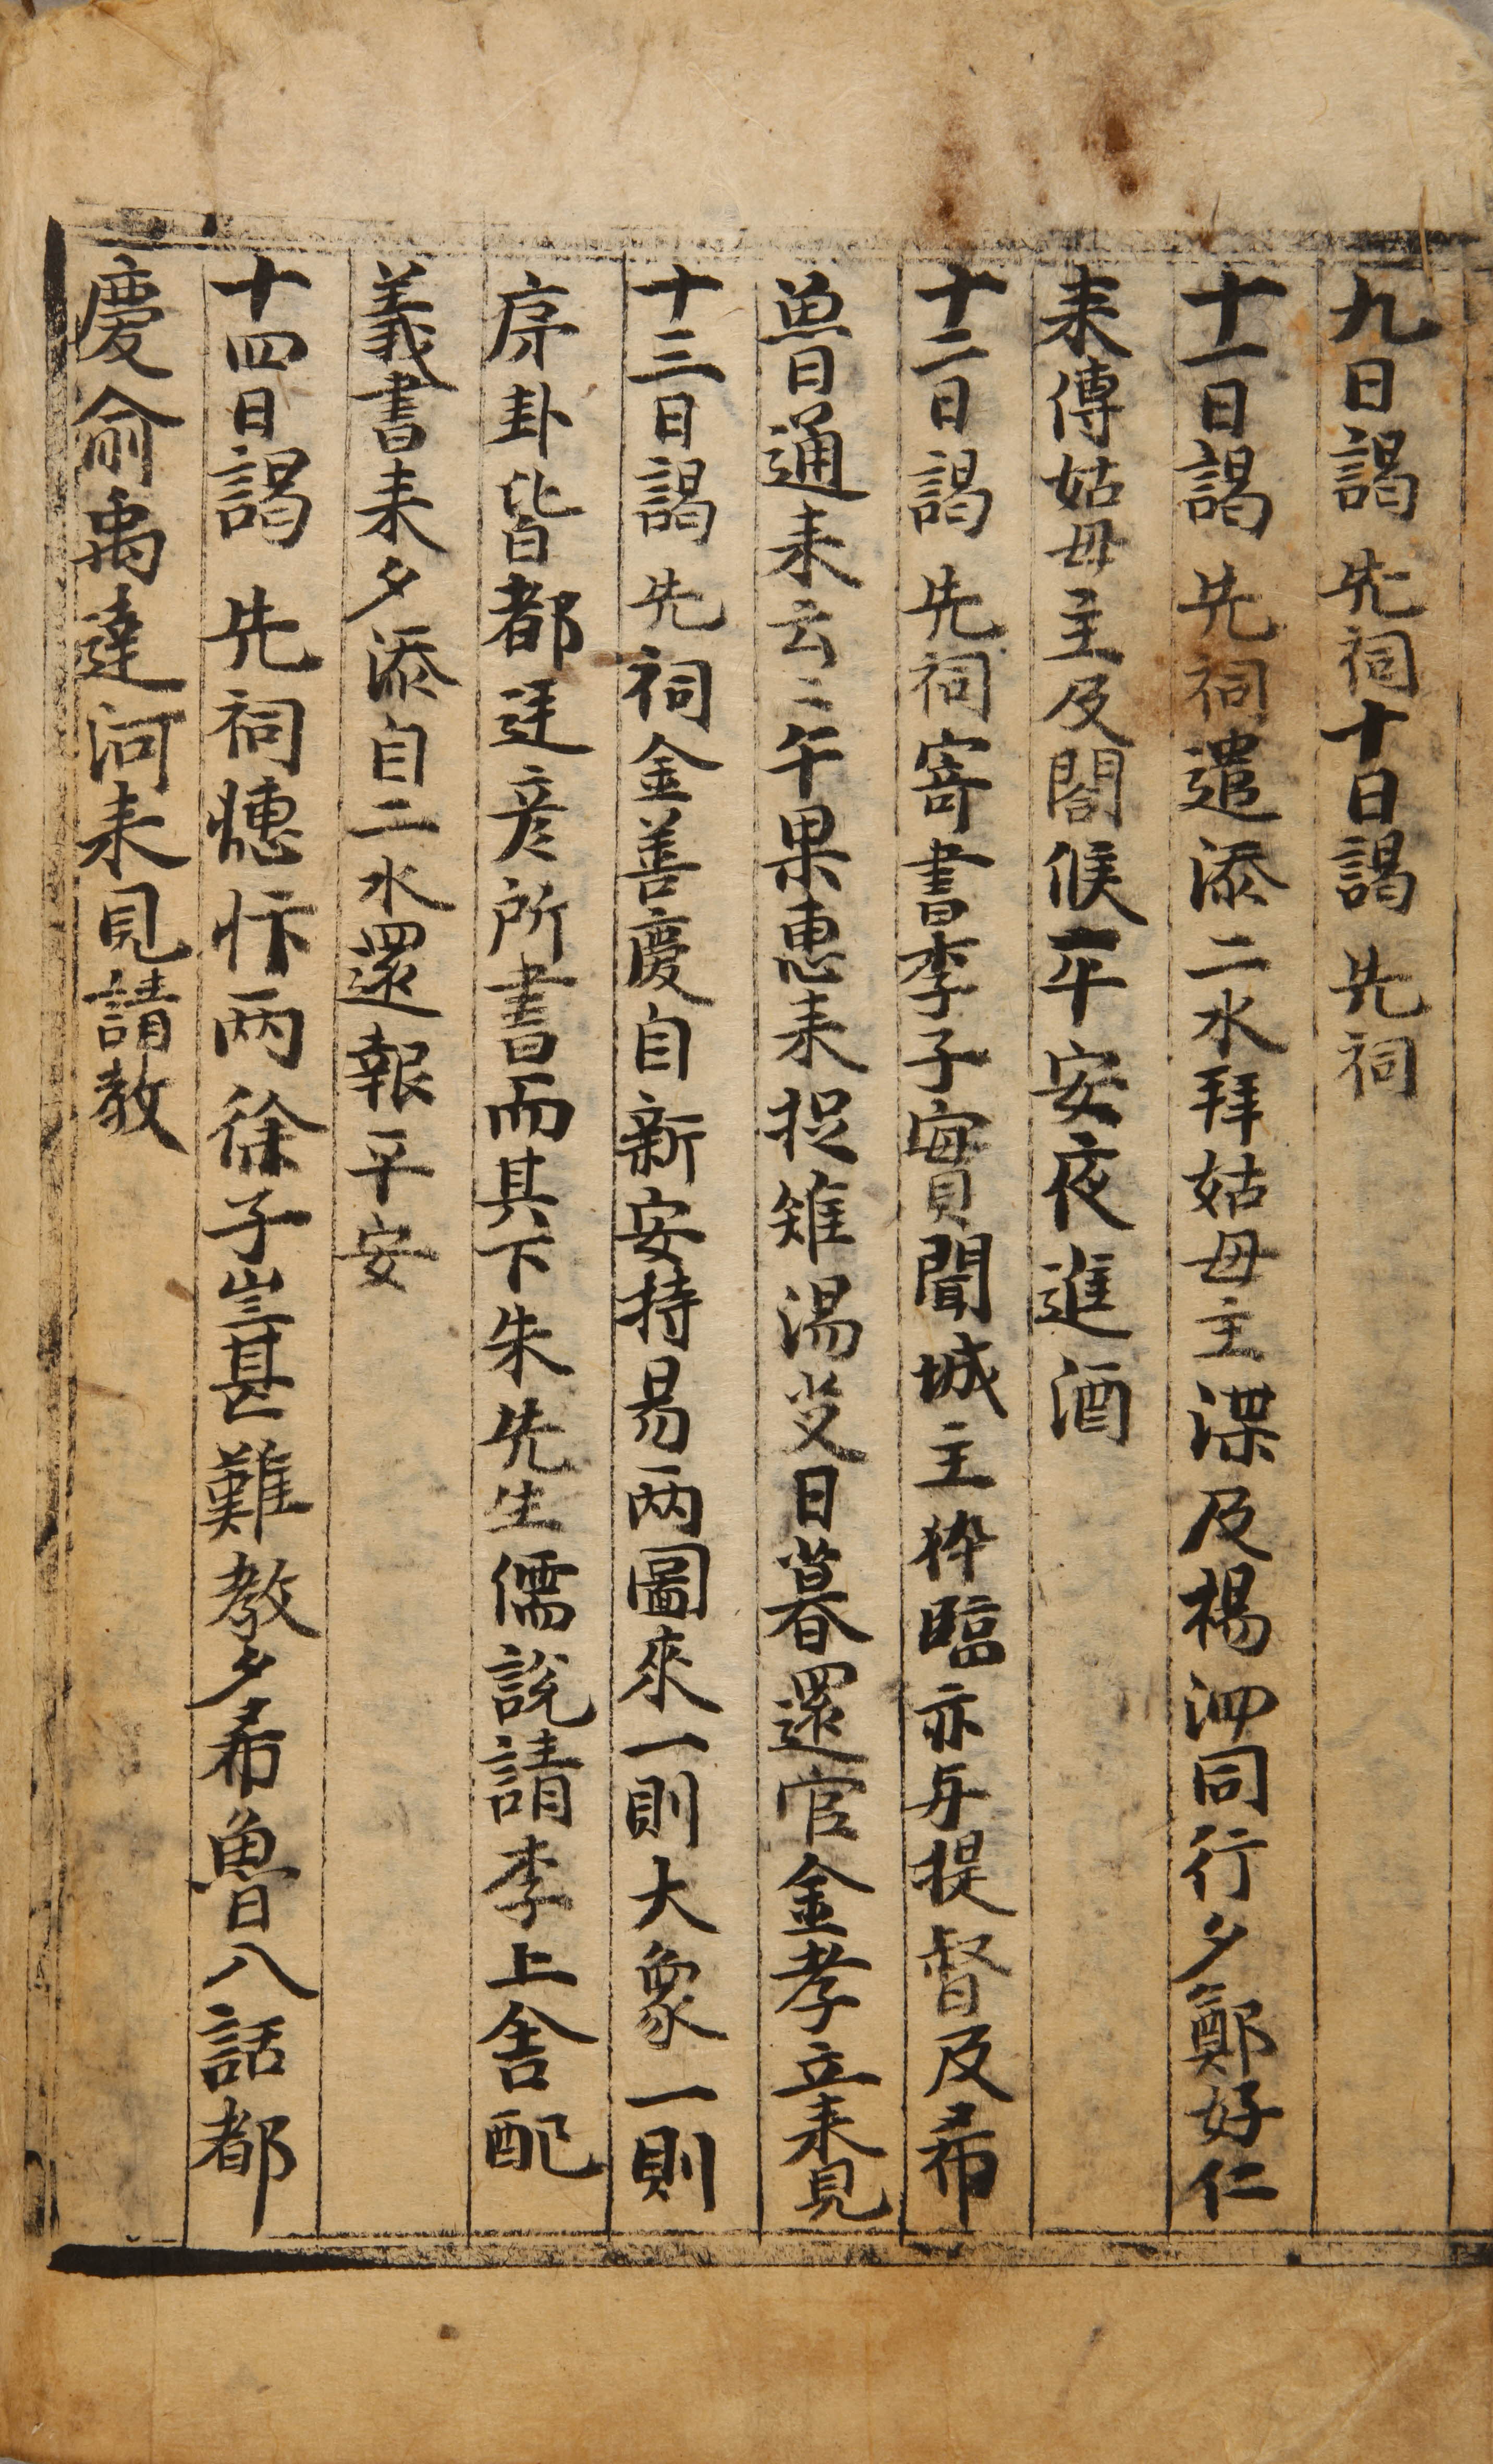 九日謁 先祠十日謁 先祠
十一日謁 先祠遣添二水拜姑母主渫及楊泗同行夕鄭好仁
来傳姑母主及閤候平安夜進酒
十二日謁 先祠寄書李子實聞城主猝臨亦与提督及希
魯日通来云々午果惠来捉雉湯炙日暮還官金孝立来見
十三日謁 先祠金善慶自新安持易兩圖來一則大象一則
序卦皆都廷彦所書而其下朱先生儒說請李上舍配
義書来夕添自二水還報平安
十四日謁 先祠憁忭兩徐子豈甚難教夕希魯日八話都
慶俞禹達河来見請教